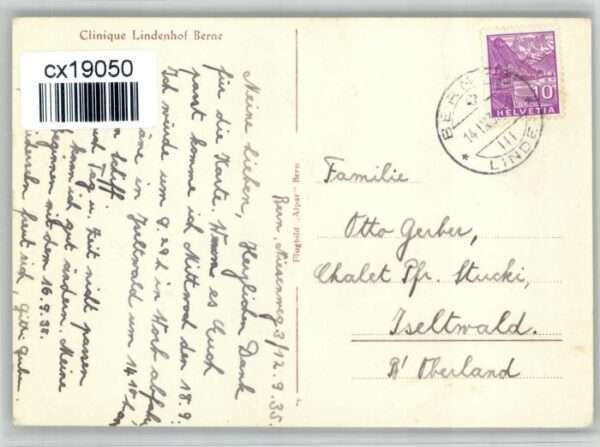 Clinique Lindenhof Berne
cx19050
HELVETIA
10
BERN
LINDE
III
14.IX
Flugbild "Alpar" Bern
Bern, 3/12.9.35.
Meine Lieben, Herzlichen Dank
für die Karte. Wenn es Euch
passt komme ich Mittwoch den 18.9.
Ich würde um 9.29 h in
in Iseltwald um 14.10
schiff.
Tag u. Zeit nicht passen
kann ich gut ändern. Meine
beginnen mit dem 16.9.35.
freut sich,
Familie
Otto Gerber,
Chalet Pfr. Stucki,
Iseltwald.
B' Oberland